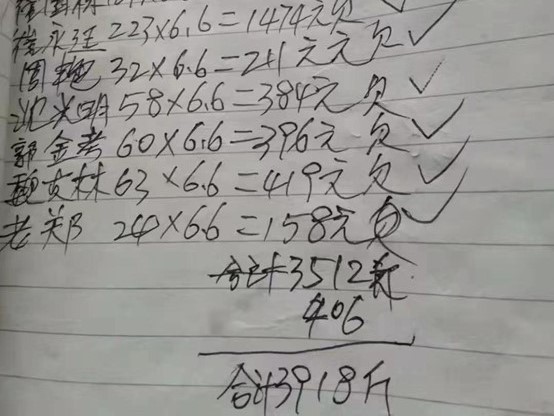 223×6.6=1474元欠✓
周艳 32×6.6=211元元欠✓
沈光明 58×6.6=384元 欠✓
郭金考 60×6.6=396元 欠✓
魏文林 63×6.6=419元欠✓
老郑 24×6.6=158元欠✓
合计3512斤
406
合计3918斤